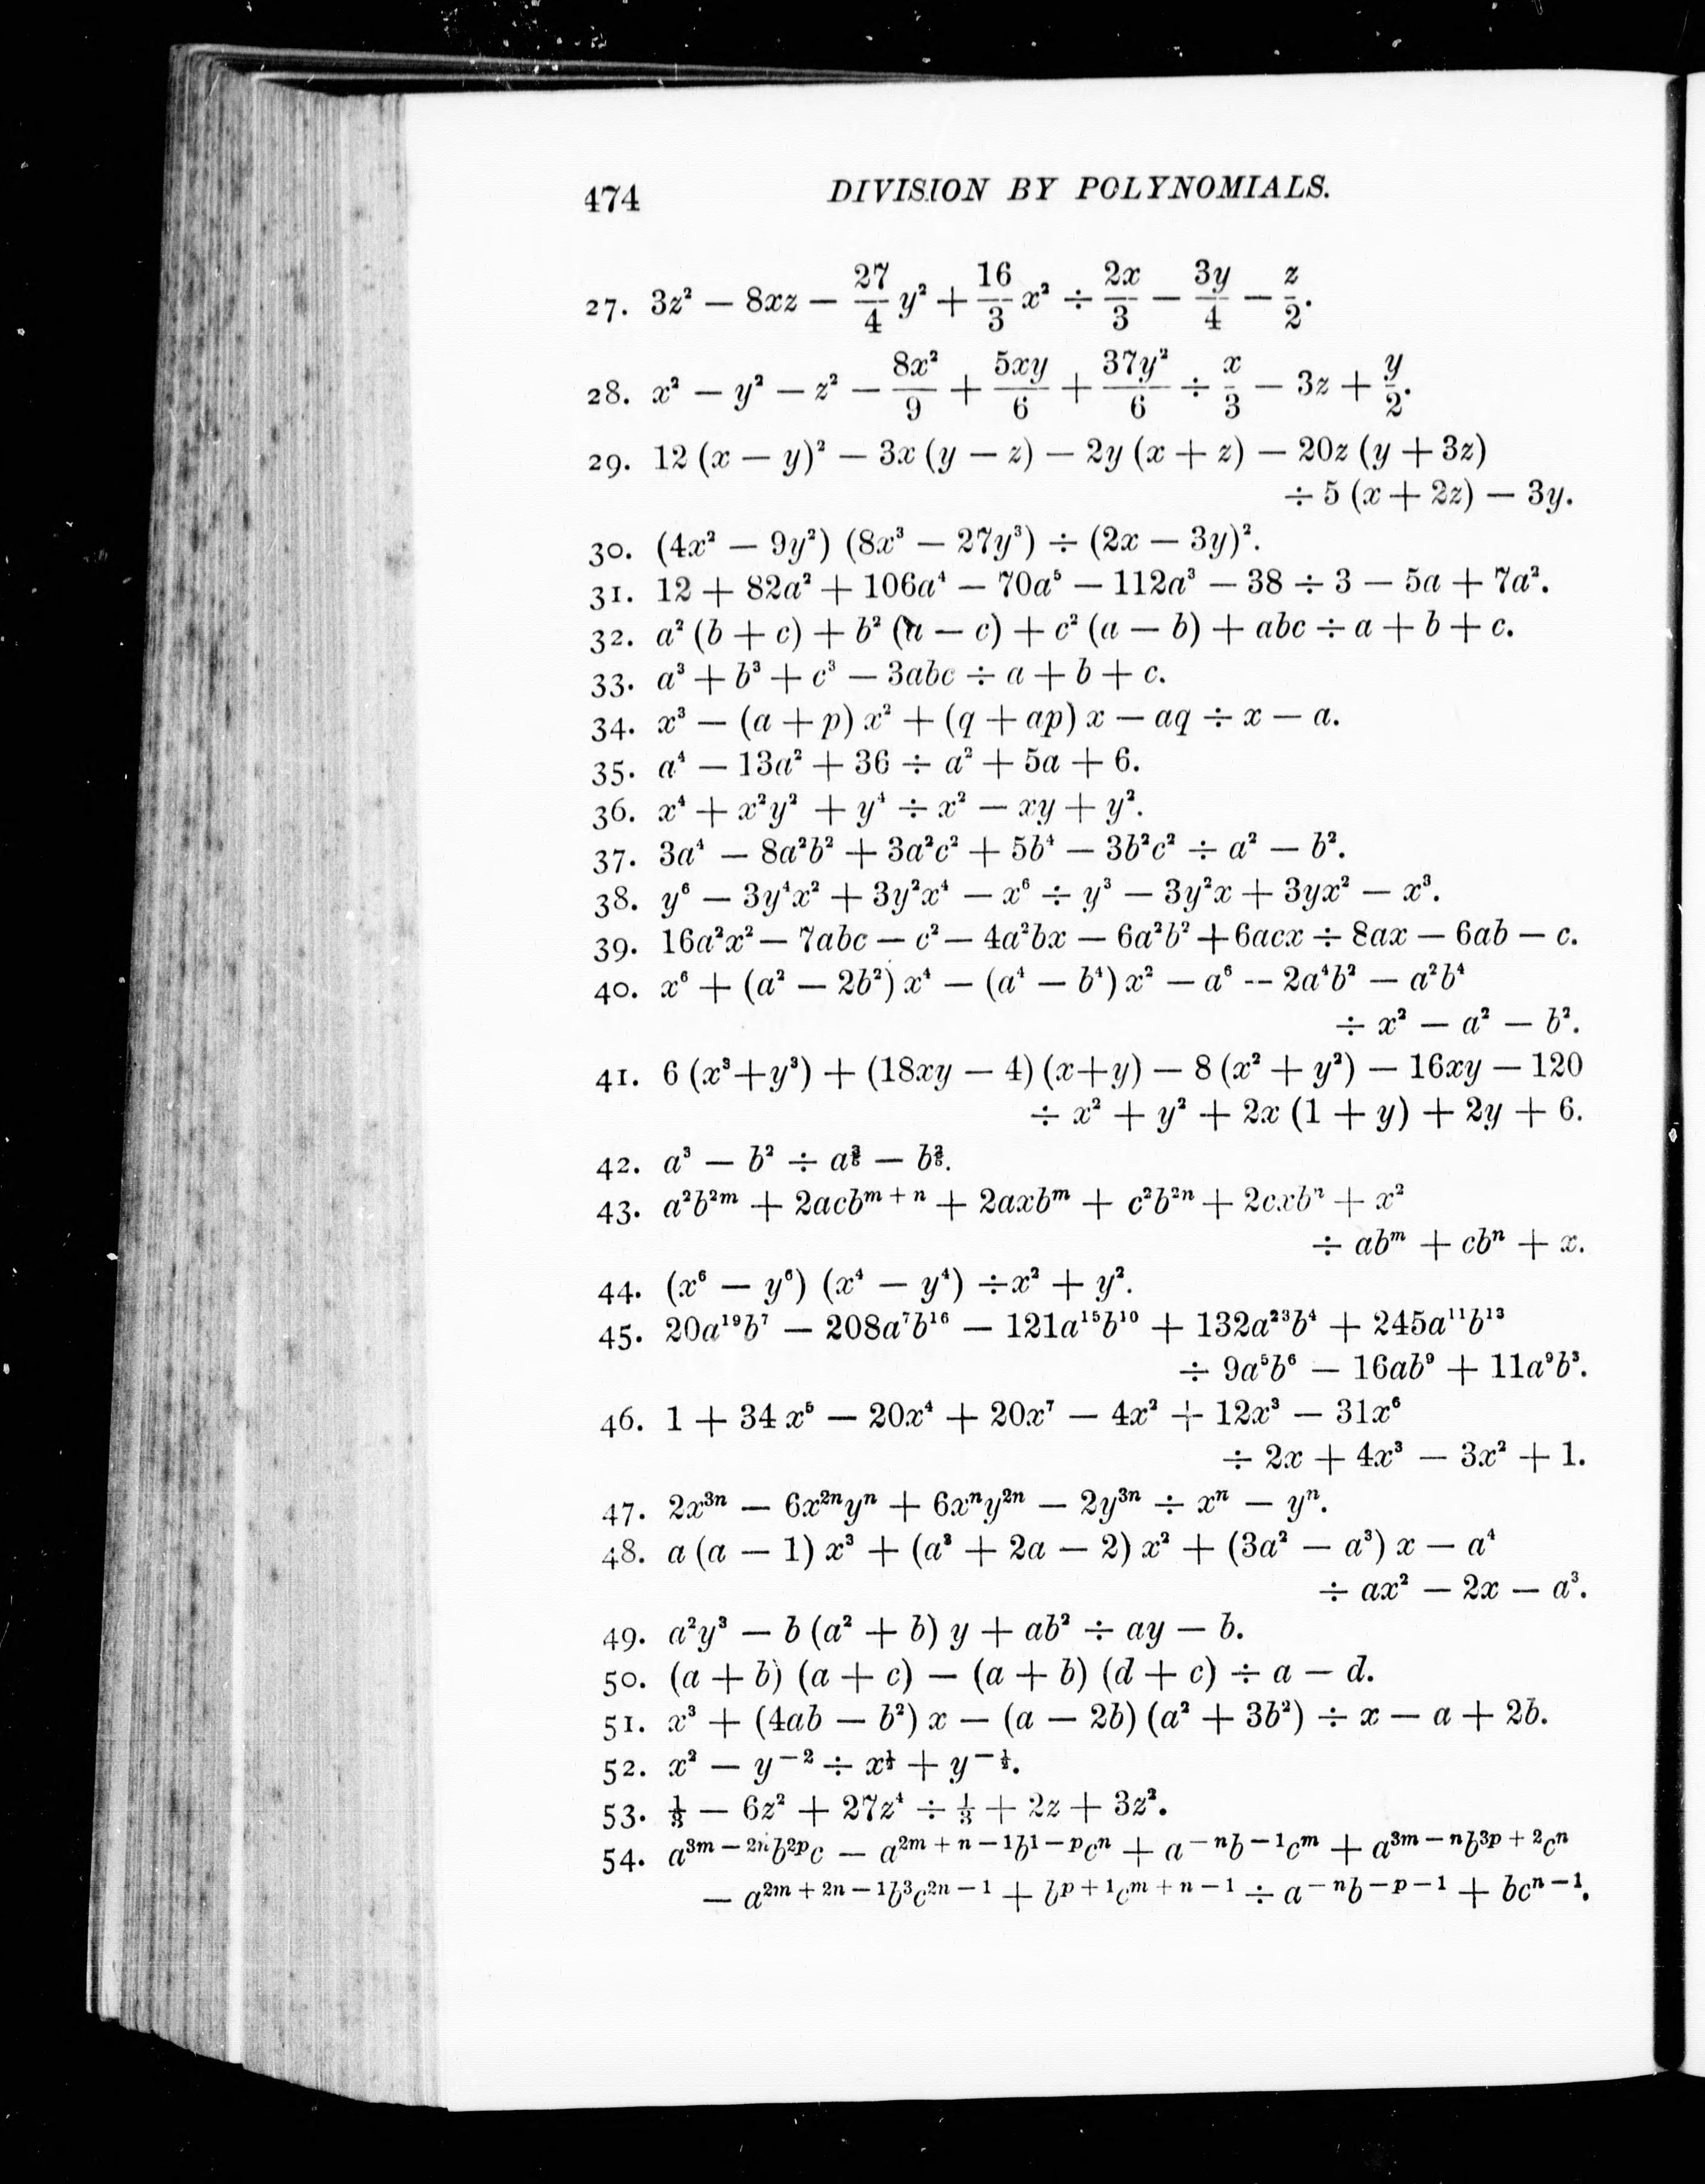 474 DIVISION BY POLYNOMIALS.
27. 3z² — 8xz — 27/4 y² + 16/3 x² ÷ 2x/3 — 3y/4 — z/2.
28. x² — y² — z² — 8x²/9 + 5xy/6 + 37y²/6 ÷ x/3 — 3z + y/2.
29. 12 (x — y)² — 3x (y — z) — 2y (x + z) — 20z (y + 3z)
÷ 5 (x + 2z) — 3y.
30. (4x² — 9y²) (8x³ — 27y³) ÷ (2x — 3y)².
31. 12 + 82a² + 106a⁴ — 70a⁵ — 112a³ — 38 ÷ 3 — 5a + 7a².
32. a² (b + c) + b² (a — c) + c² (a — b) + abc ÷ a + b + c.
33. a³ + b³ + c³ — 3abc ÷ a + b + c.
34. x³ — (a + p) x² + (q + ap) x — aq ÷ x — a.
35. a⁴ — 13a² + 36 ÷ a² + 5a + 6.
36. x⁴ + x²y² + y⁴ ÷ x² — xy + y².
37. 3a⁴ — 8a²b² + 3a²c² + 5b⁴ — 3b²c² ÷ a² — b².
38. y⁶ — 3y⁴x² + 3y²x⁴ — x⁶ ÷ y³ — 3y²x + 3yx² — x³.
39. 16a²x² — 7abc — c² — 4a²bx — 6a²b² + 6acx ÷ 8ax — 6ab — c.
40. x⁶ + (a² — 2b²) x⁴ — (a⁴ — b⁴) x² — a⁶ -- 2a⁴b² — a²b⁴
÷ x² — a² — b².
41. 6 (x³+y³) + (18xy — 4) (x+y) — 8 (x² + y²) — 16xy — 120
÷ x² + y² + 2x (1 + y) + 2y + 6.
42. a³ — b² ÷ a — b.
43. a²b²ᵐ + 2acbᵐ ⁺ ⁿ + 2axbᵐ + c²b²ⁿ + 2cxbⁿ + x²
÷ abᵐ + cbⁿ + x.
44. (x⁶ — y⁶) (x⁴ — y⁴) ÷x² + y².
45. 20a¹⁹b⁷ — 208a⁷b¹⁶ — 121a¹⁵b¹⁰ + 132a²³b⁴ + 245a¹¹b¹³
÷ 9a⁵b⁶ — 16ab⁹ + 11a⁹b³.
46. 1 + 34 x⁵ — 20x⁴ + 20x⁷ — 4x² + 12x³ — 31x⁶
÷ 2x + 4x³ — 3x² + 1.
47. 2x³ⁿ — 6x²ⁿyⁿ + 6xⁿy²ⁿ — 2y³ⁿ ÷ xⁿ — yⁿ.
48. a (a — 1) x³ + (a³ + 2a — 2) x² + (3a² — a³) x — a⁴
÷ ax² — 2x — a³.
49. a²y³ — b (a² + b) y + ab² ÷ ay — b.
50. (a + b) (a + c) — (a + b) (d + c) ÷ a — d.
51. x³ + (4ab — b²) x — (a — 2b) (a² + 3b²) ÷ x — a + 2b.
52. x² — y⁻² ÷ x + y.
53. ⅓ — 6z² + 27z⁴ ÷ ⅓ + 2z + 3z².
54. a³ᵐ ⁻ ²ⁿb²ᵖc — a²ᵐ ⁺ ⁿ ⁻ ¹b¹ ⁻ ᵖcⁿ + a⁻ ⁿb⁻ ¹cᵐ + a³ᵐ ⁻ ⁿb³ᵖ ⁺ ²cⁿ
— a²ᵐ ⁺ ²ⁿ ⁻ ¹b³c²ⁿ ⁻ ¹ + bᵖ ⁺ ¹cᵐ ⁺ ⁿ ⁻ ¹ ÷ a⁻ ⁿb⁻ ᵖ ⁻ ¹ + bcⁿ ⁻ ¹.